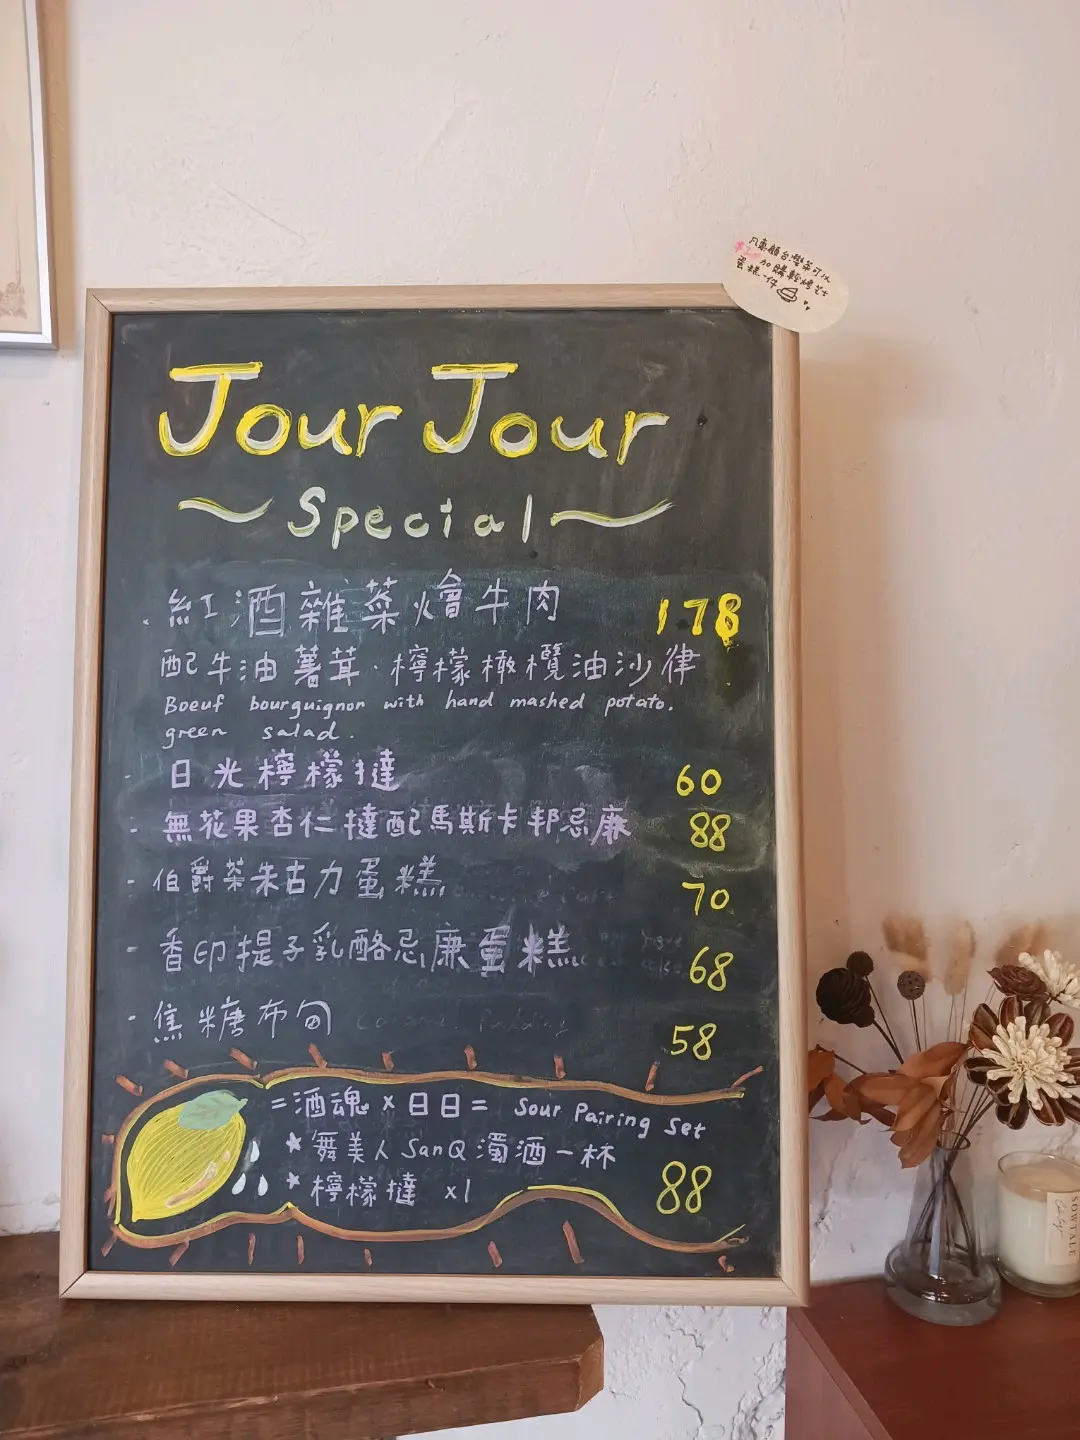 加購輕烤芝士
蛋糕一件
Jour Jour
~Special~
·紅酒雜菜燴牛肉 178
配牛油薯茸·檸檬橄欖油沙律
Boeuf bourguignon with hand mashed potato.
green salad.
- 日光檸檬撻 60
- 無花果杏仁撻配馬斯卡邦忌廉 88
- 伯爵茶朱古力蛋糕 70
- 香印提子乳酪忌廉蛋糕 68
- 焦糖布甸 58
=酒魂×日日= Sour Pairing Set
*舞美人SanQ濁酒一杯
*檸檬撻 x1 88
SOWTALE